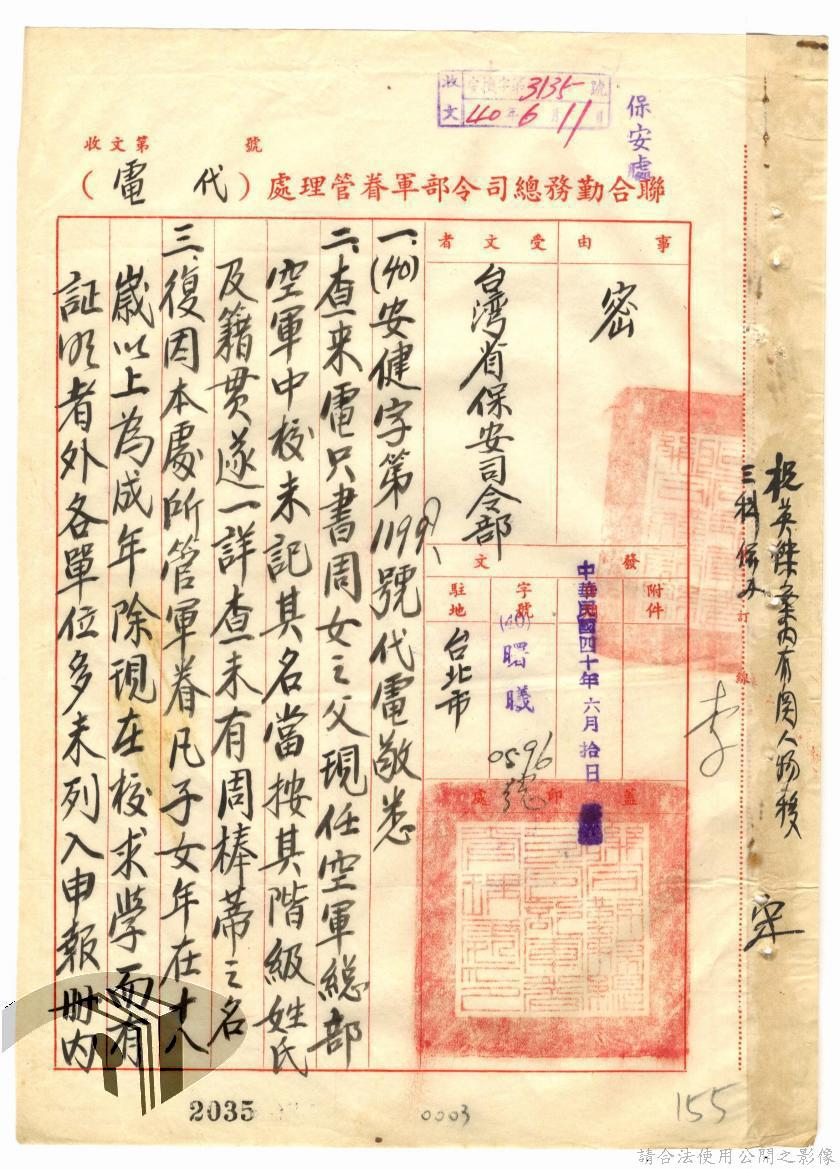 收文 字第3135號
40年6月11日
保安處
收文第 號
聯合勤務總司令部軍眷管理處(代電)
事由
密
受文者
台湾省保安司令部
發文
附件
中華民國四十年六月拾日
字號
(40)曙曦
0596號
駐地
台北市
蓋印處
一、(40)安健字第1199號代電敬悉
二、查来電只書周女之父現任空軍總部
空軍中校未記其名當按其階級姓氏
及籍贯遂一詳查未有周棒蒂之名
三、復因本處所管軍眷凡子女年在十八
歲以上為成年除現在校求學而有
証明者外各單位多未列入申報册内
祝英傑案内有関人物後
三科
訂線
李
宋
2035
0003
155
請合法使用公開之影像